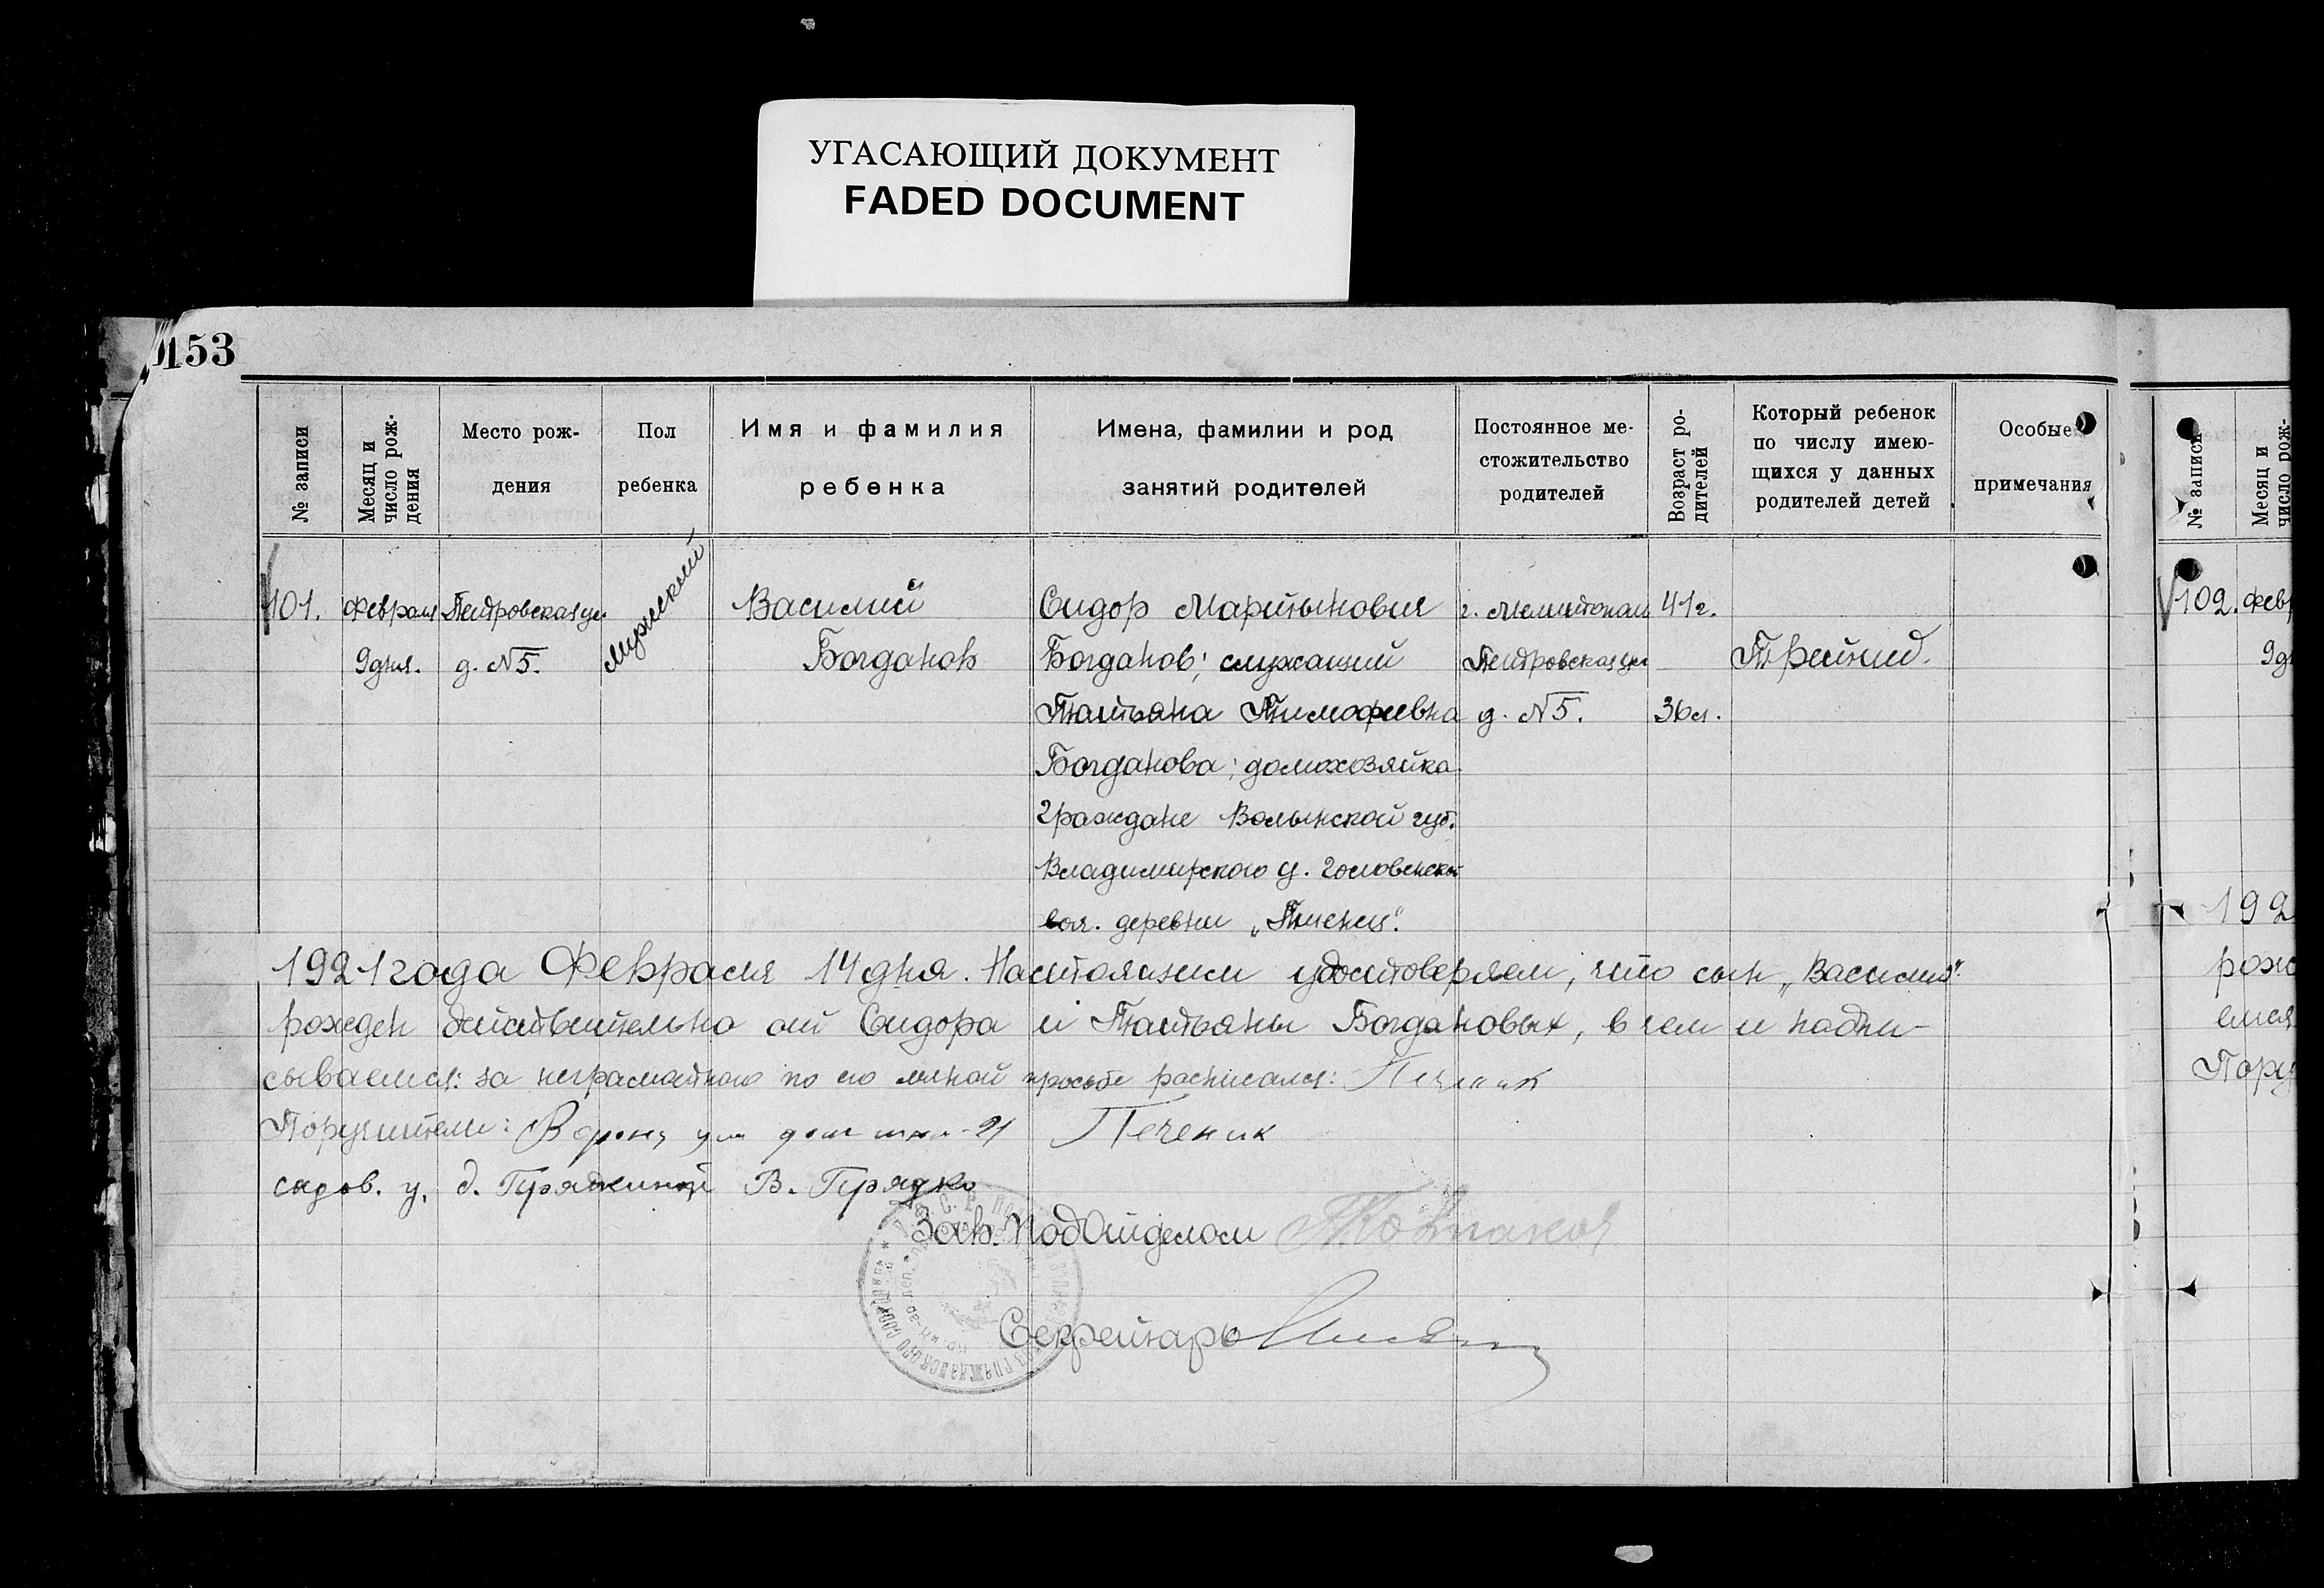 УГАСАЮЩИЙ ДОКУМЕНТ
FADED DOCUMENT
153
№ записи
Месяц и
число рож-
дения
Место рож-
дения
Пол
ребенка
Имя и фамилия
ребенка
Имена, фамилии и род
занятий родителей
Постоянное ме-
стожительство
родителей
Возраст ро-
дителей
Который ребенок
по числу имею-
щихся у данных
родителей детей
Особые
примечания
101.
Февраля
9 дня.
Петровская ул.
д. №5.
Мужеский
Василий
Богданов
Сидор Мартынович
Богданов; служащий
Татьяна Тимофеевна
Богданова; домохозяйка
граждане Волынской губ.
Владимирского у.
вол. деревни
г. Мелитополь
Петровская ул
д. №5.
41 г.
36 л.
Третий.
1921 года Февраля 14 дня. Настоящим удостоверяем, что сын „Василий"
рожден действительно от Сидора и Татьяны Богдановых, в чем и подпи-
сываемся: за неграмотного по его личной просьбе расписался: Печеник
Поручители: Печеник
садов. у. д. В. Прядко
Зав. ПодОтделом
Секретарь
№ записи
Месяц и
число рож-
102.
Февр
9 дн
192
рожд
емся
Пору